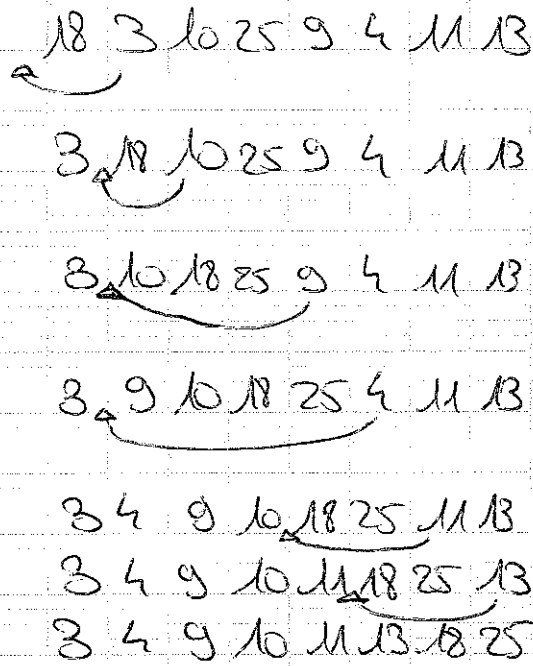 18 3 10 25 9 4 11 13
3 18 10 25 9 4 11 13
3 10 18 25 9 4 11 13
3 9 10 18 25 4 11 13
3 4 9 10 18 25 11 13
3 4 9 10 11 18 25 13
3 4 9 10 11 13 18 25